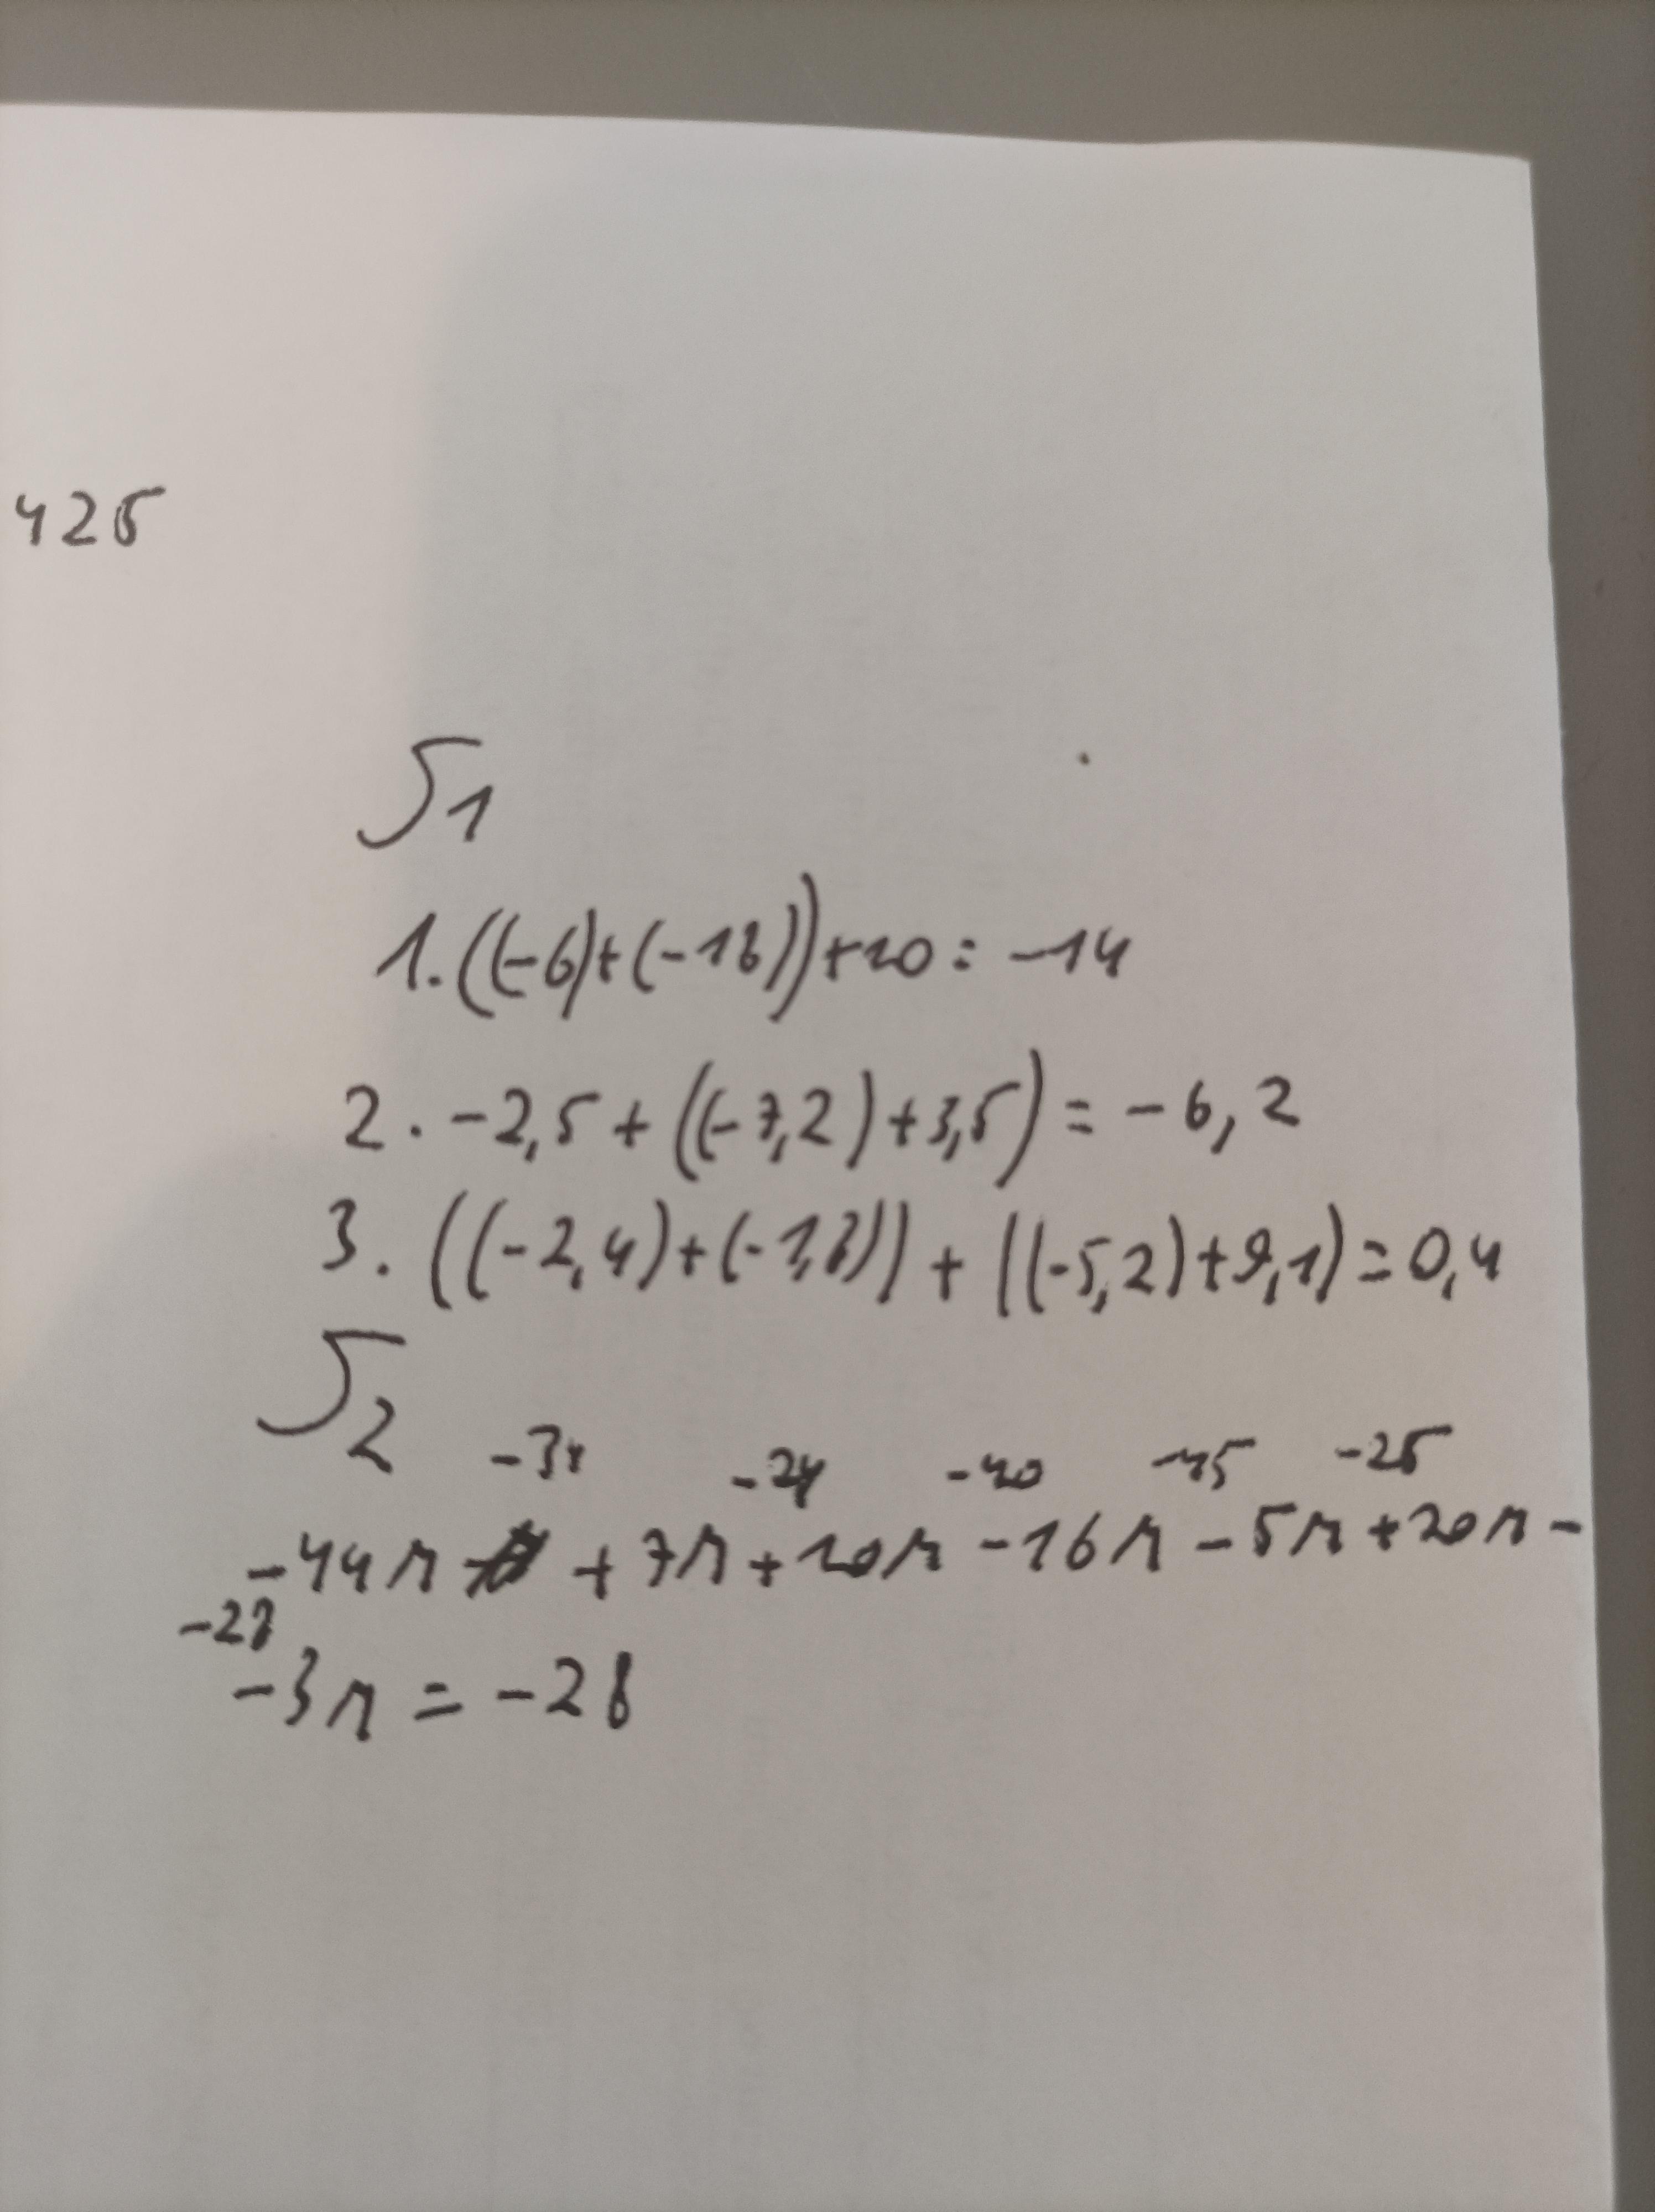 425
5 1
1. ((-6)+(-18))+20 = -14
2. -2,5 + ((-7,2)+3,5) = -6,2
3. ((-2,4)+(-1,8)) + ((-5,2)+9,1) = 0,4
5 2
-24 -40 -45 -25
-44л + 7л + 10л - 16л - 5л + 20л -
-28
-3л = -28